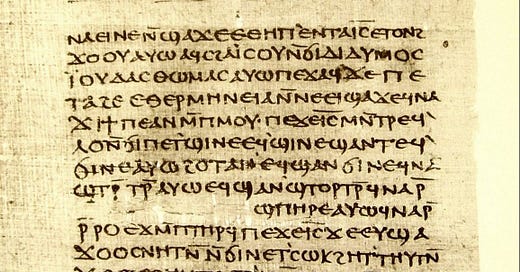 ⲛⲁⲉⲓⲛⲉⲛ̄ϣⲁϫⲉⲉⲑⲏⲡⲉⲛⲧⲁⲓ̅ⲥ̅ⲉⲧⲟⲛϩ
ϫⲟⲟⲩⲁⲩⲱⲁϥⲥϩⲁⲓ̈ⲥⲟⲩⲛ̄ϭⲓⲇⲓⲇⲩⲙⲟⲥ
ⲓ̈ⲟⲩⲇⲁⲥⲑⲱⲙⲁⲥⲁⲩⲱⲡⲉϫⲁϥϫⲉⲡⲉ
ⲧⲁϩⲉⲉⲑⲉⲣⲙⲏⲛⲉⲓⲁⲛ̄ⲛⲉⲉⲓϣⲁϫⲉϥⲛⲁ
ϫⲓϯⲡⲉⲁⲛⲙ̄ⲡⲙⲟⲩ·ⲡⲉϫⲉⲓ̅ⲥ̅ⲙⲛ̄ⲧⲣⲉϥ
ⲗⲟⲛ̄ϭⲓⲡⲉⲧϣⲓⲛⲉⲉϥϣⲓⲛⲉϣⲁⲛⲧⲉϥ
ϭⲓⲛⲉⲁⲩⲱϩⲟⲧⲁⲛⲉϥϣⲁⲛϭⲓⲛⲉϥⲛⲁ
ϣⲧⲣ̄ⲧⲣ̄ⲁⲩⲱⲉϥϣⲁⲛϣⲧⲟⲣⲧⲣ̄ϥⲛⲁⲣ̄
ϣⲡⲏⲣⲉⲁⲩⲱϥⲛⲁⲣ̄
ⲣ̄ⲣⲟⲉϫⲙ̄ⲡⲧⲏⲣϥⲡⲉϫⲉⲓ̅ⲥ̅ϫⲉⲉⲩϣⲁ
ϫⲟⲟⲥⲛⲏⲧⲛ̄ⲛ̄ϭⲓⲛⲉⲧⲥⲱⲕϩⲏⲧⲧⲏⲩⲧⲛ̄